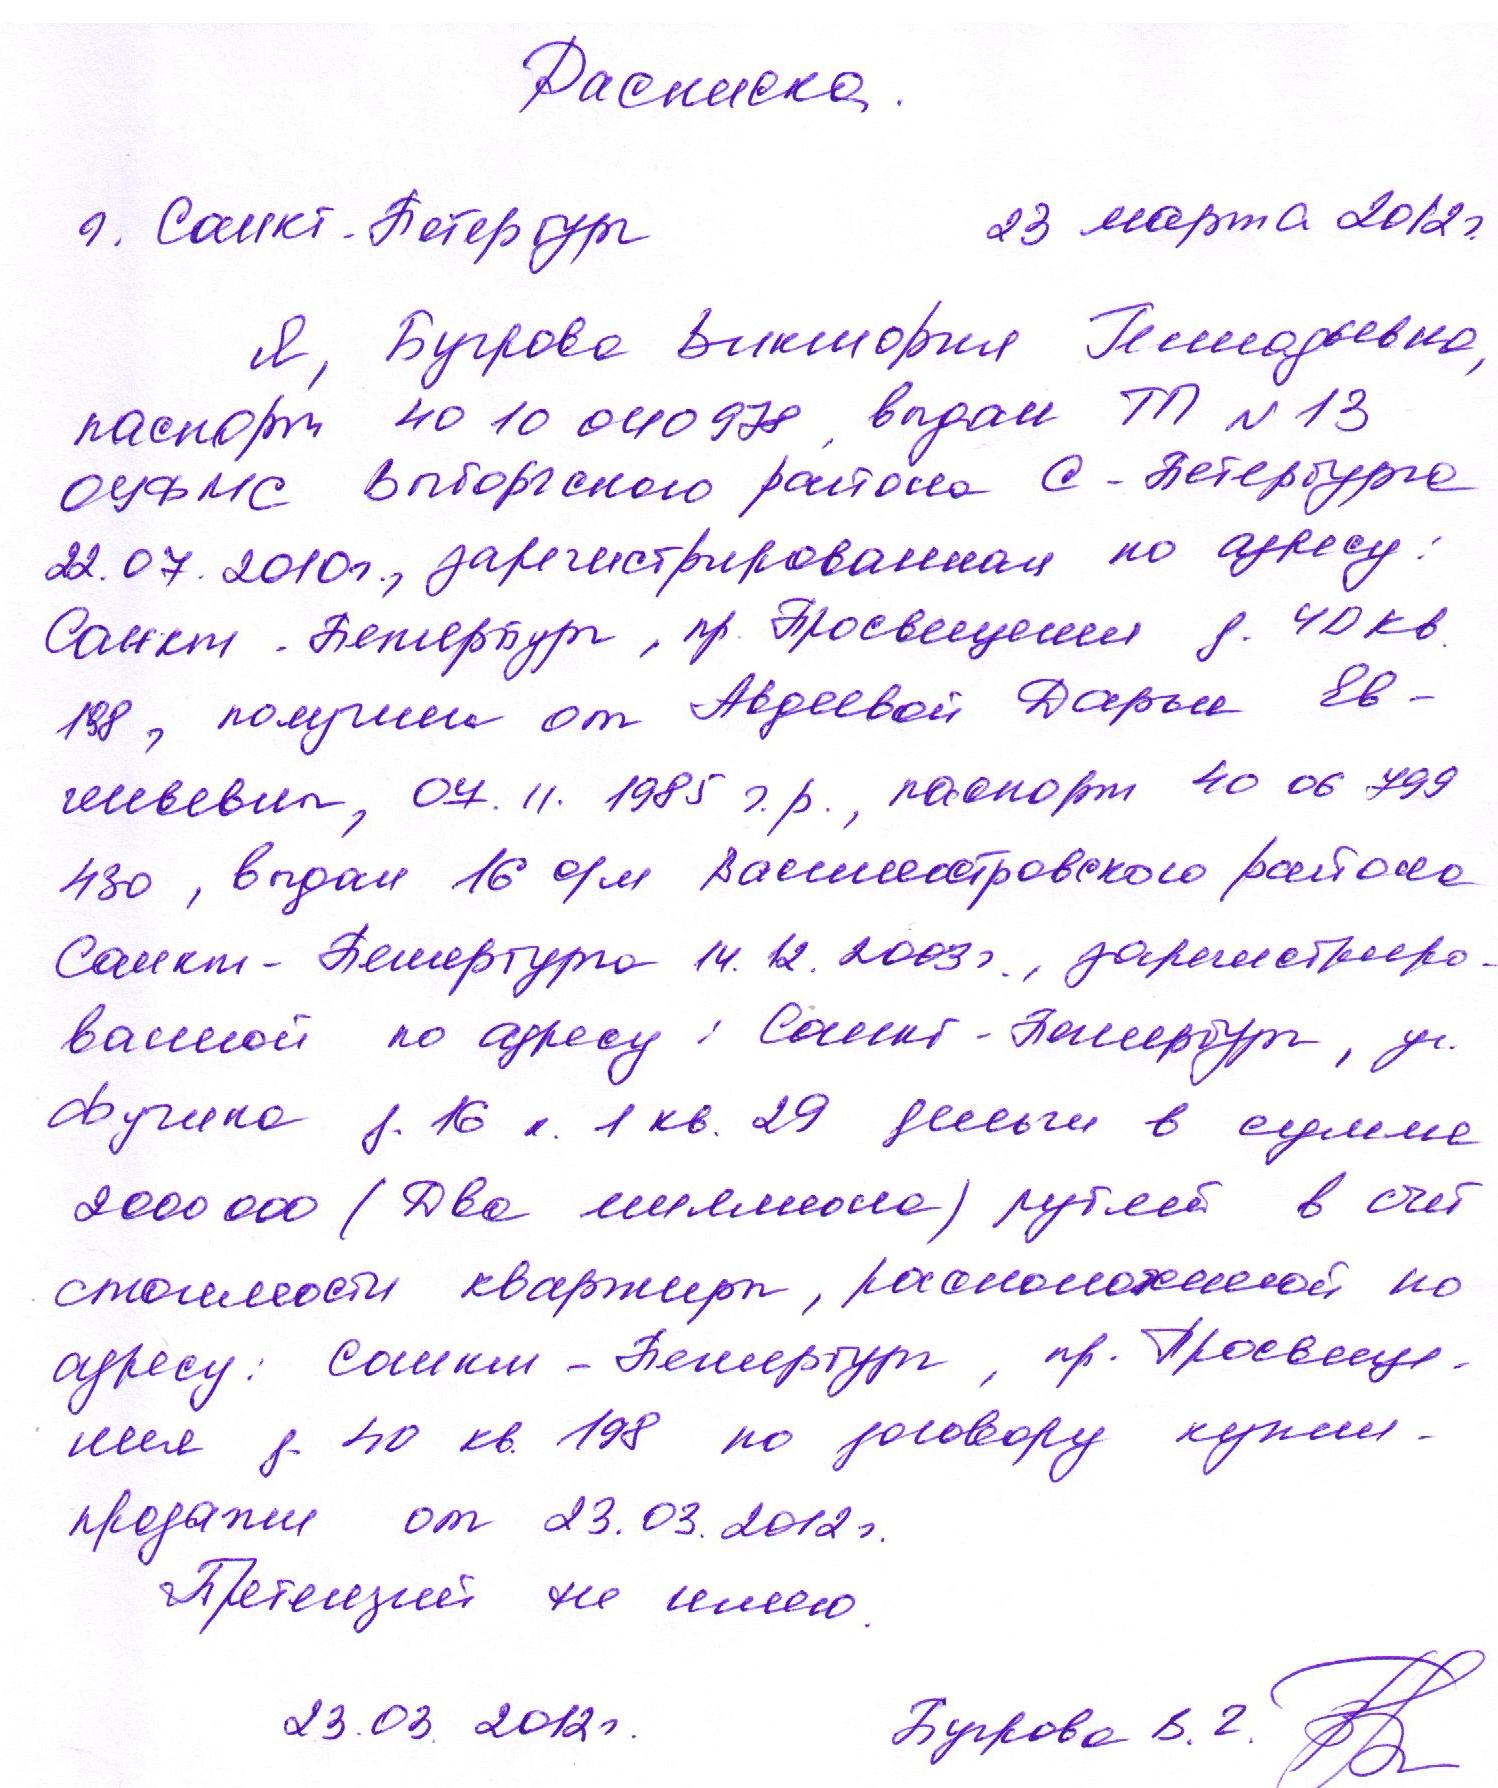 Расписка.
г. Санкт-Петербург 23 марта 2012г.
Я, Бугрова Виктория Геннадьевна,
паспорт 40 10 040978, выдан ТП N 13
ОУФМС Выборгского района С-Петербурга
22.07.2010г., зарегистрированная по адресу:
Санкт-Петербург, пр. Просвещения д. 40 кв.
198, получила от Авдеевой Дарьи Ев-
геньевны, 07.11.1985 г.р., паспорт 40 06 799
430, выдан 16 о/м Василеостровского района
Санкт-Петербурга 14.12.2003г., зарегистриро-
ванной по адресу: Санкт-Петербург, ул.
Фучика д. 16 к. 1 кв. 29 деньги в сумме
2000 000 (Два миллиона) рублей в счет
стоимости квартиры, расположенной по
адресу: Санкт-Петербург, пр. Просвеще-
ния д. 40 кв. 198 по договору купли-
продажи от 23.03.2012г.
Претензий не имею.
23.03.2012г. Бугрова В.Г.